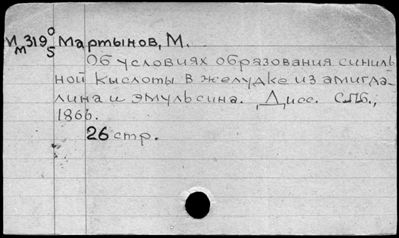 Им319 0/5 Мартынов, М.
Об условиях образования синиль
ной кислоты в желудке из амигда-
лина и эмульсина. Дисс. СПб.,
1866.
26 стр.